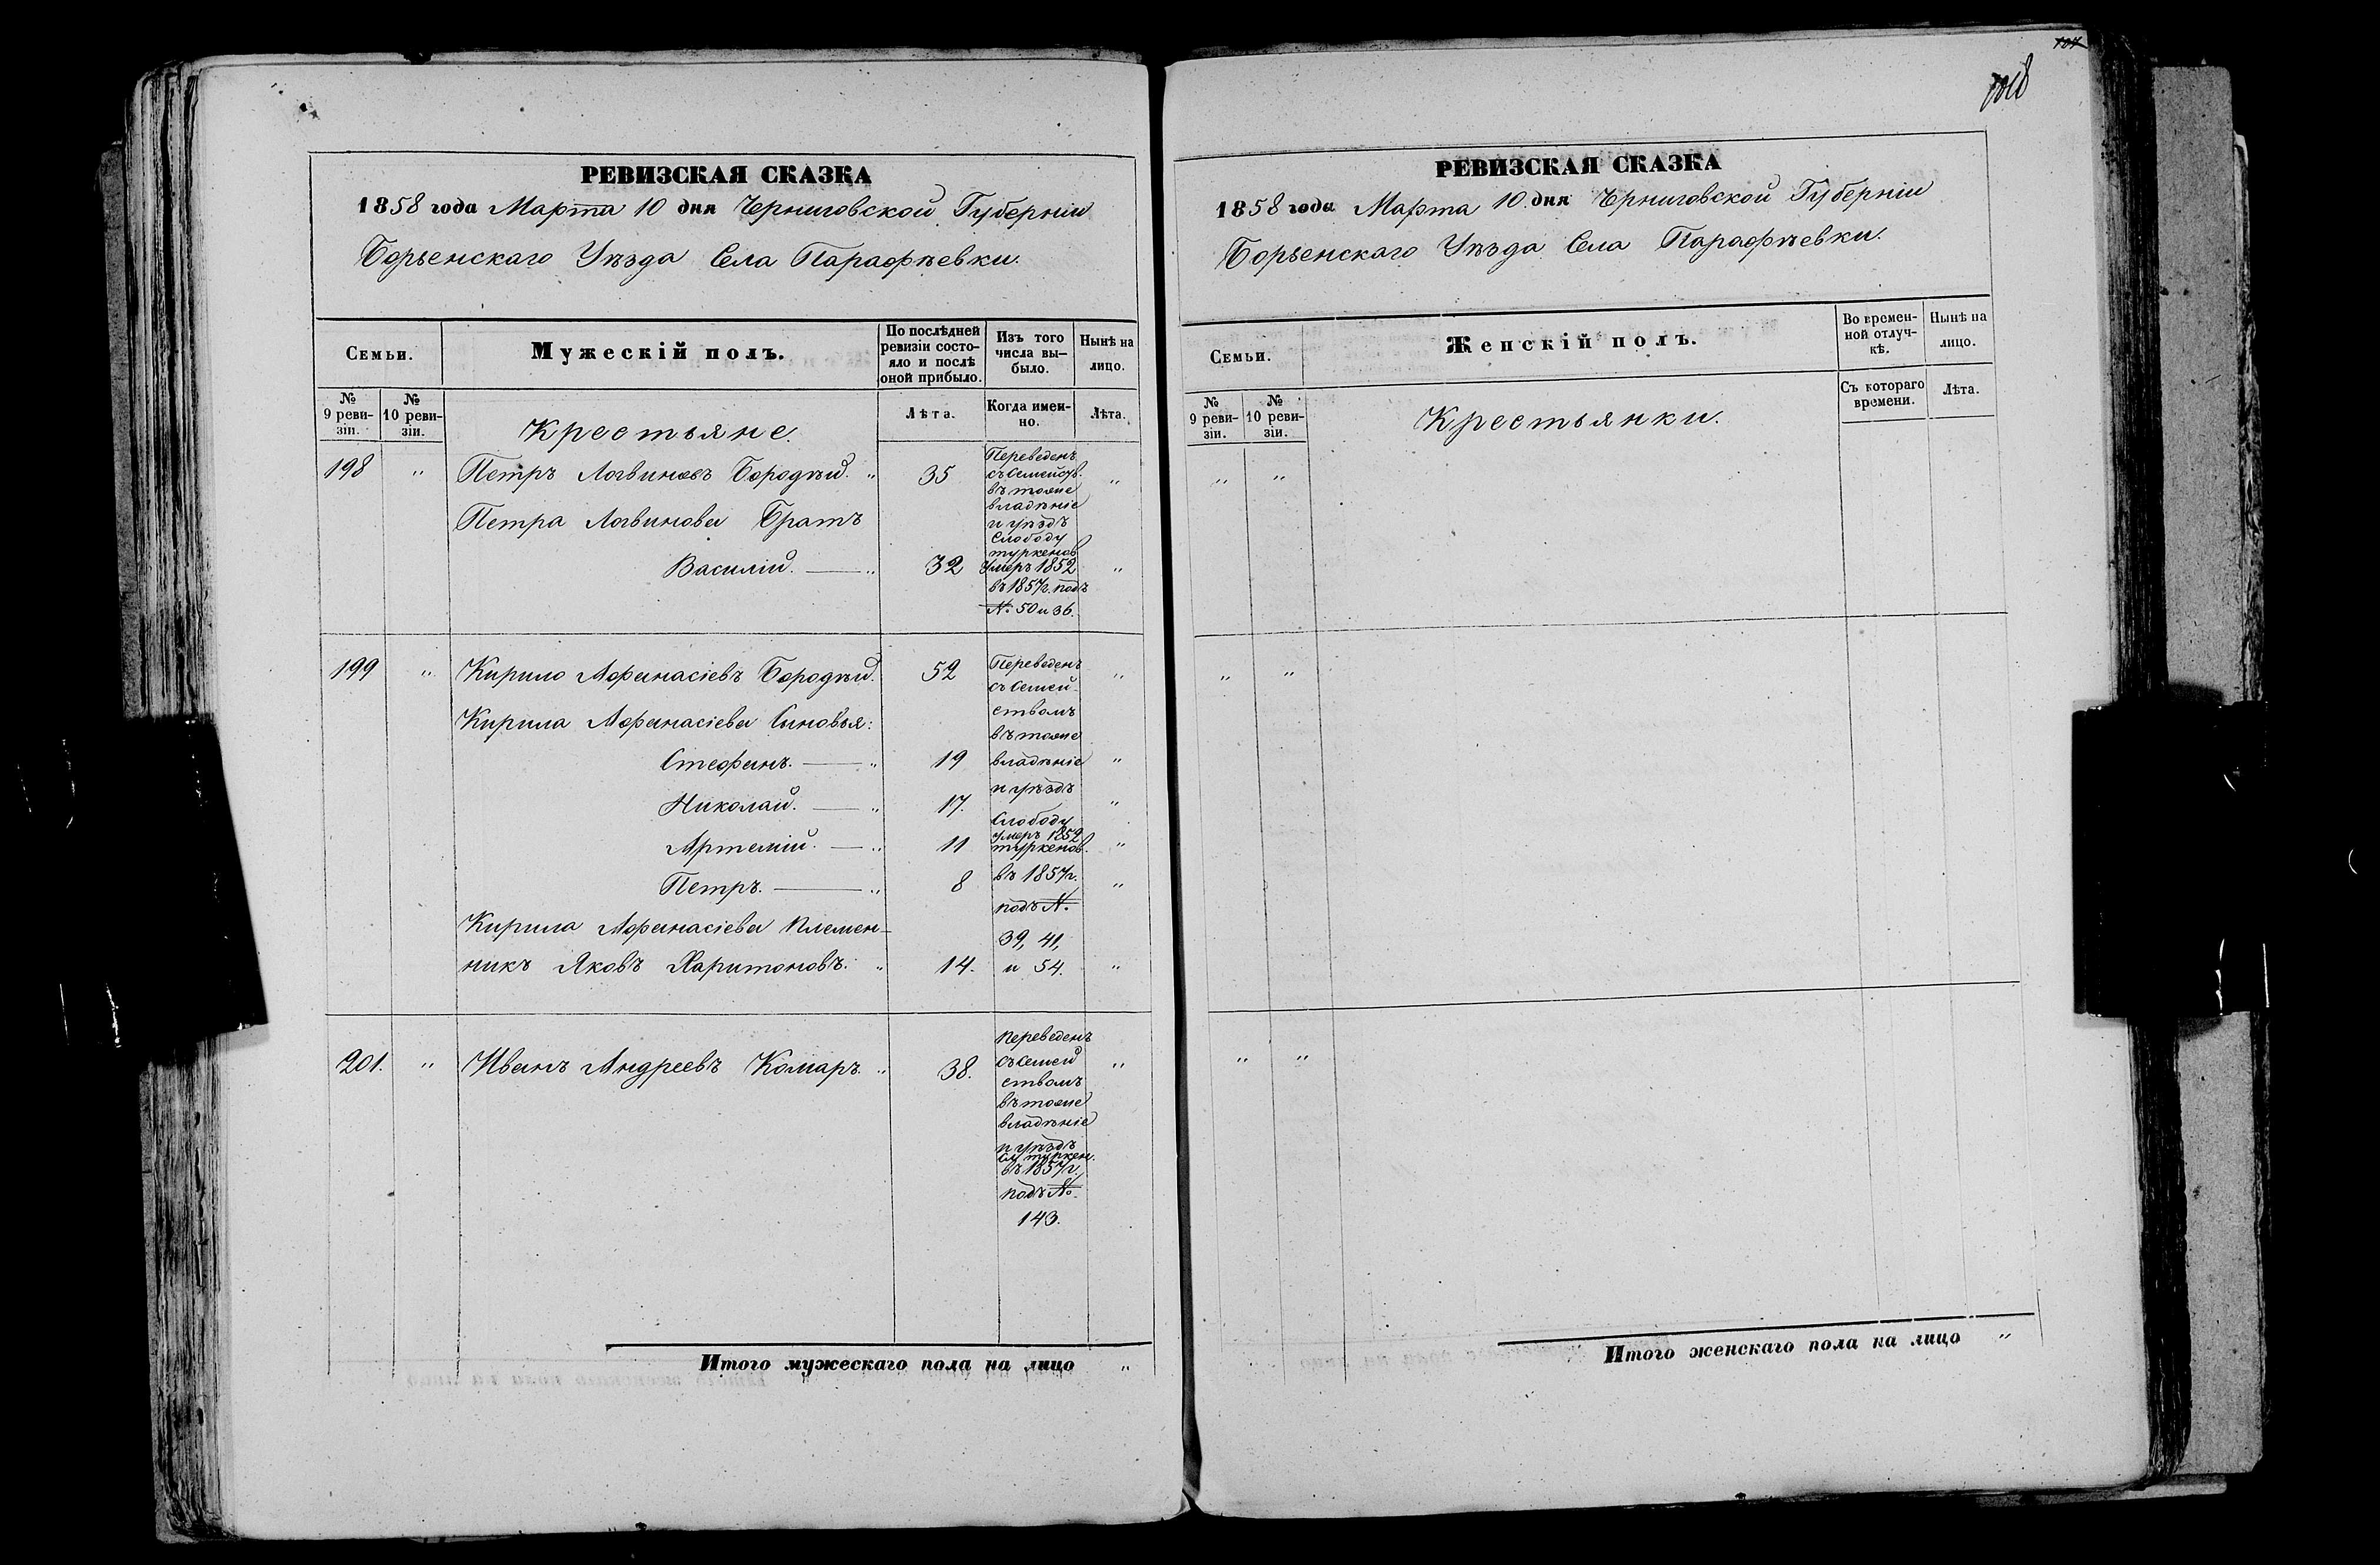 РЕВИЗСКАЯ СКАЗКА
1858 года Марта 10 дня Черниговской Губерніи
Борзенскаго Уѣзда Села Парафѣевки.
Семьи.
Мужескій полъ.
По послѣдней
ревизіи состо-
яло и послѣ
оной прибыло.
Изъ того
числа вы-
было.
Нынѣ на
лицо.
№
9 реви-
зіи.
№
10 реви-
зіи.
Крестьяне.
Лѣта.
Когда имен-
но.
Лѣта.
198 " Петръ Логвиновъ Бородѣй. " 35 "
Переведенъ
съ Семейств.
въ тоже
владѣніе
и уѣздъ
Слободу
туркенов
Петра Логвинова Братъ
Василій. " 32 Умеръ 1852 "
въ 1857г. подъ
№. 50 и 36.
199 " Кирило Афанасіевъ Бородѣй. 52 "
Переведенъ
съ Семей-
ствомъ
въ тоже
владѣніе
и уѣздъ
Слободу
Кирила Афанасіева Сыновья:
Стефанъ. " 19 "
Николай. " 17. "
Артемій. " 11 умеръ 1852 "
туркенов.
Петръ. " 8 въ 1857г. "
подъ №.
Кирила Афанасіева Племен-
39, 41,
никъ Яковъ Харитоновъ. " 14. и 54. "
201. " Иванъ Андреевъ Комаръ. " 38. "
Переведенъ
съ семей
ствомъ
въ тоже
владѣніе
и уѣздъ
сл туркен.
въ 1857г.
подъ №.
143.
Итого мужескаго пола на лицо "
107
РЕВИЗСКАЯ СКАЗКА
1858 года Марта 10 дня Черниговской Губерніи
Борзенскаго Уѣзда Села Парафѣевки.
Семьи.
Женскій полъ.
Во времен-
ной отлуч-
кѣ.
Нынѣ на
лицо.
№
9 реви-
зіи.
№
10 реви-
зіи.
Крестьянки.
Съ котораго
времени.
Лѣта.
" "
" "
" "
Итого женскаго пола на лицо "